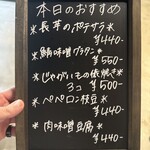 本日のおすすめ
*長芋のポテサラ*
¥440-
*鯖味噌グラタン*
¥550-
*じゃがいもの俵焼き*
3コ ¥500-
*ペペロン枝豆*
¥440-
*肉味噌豆腐*
¥440-